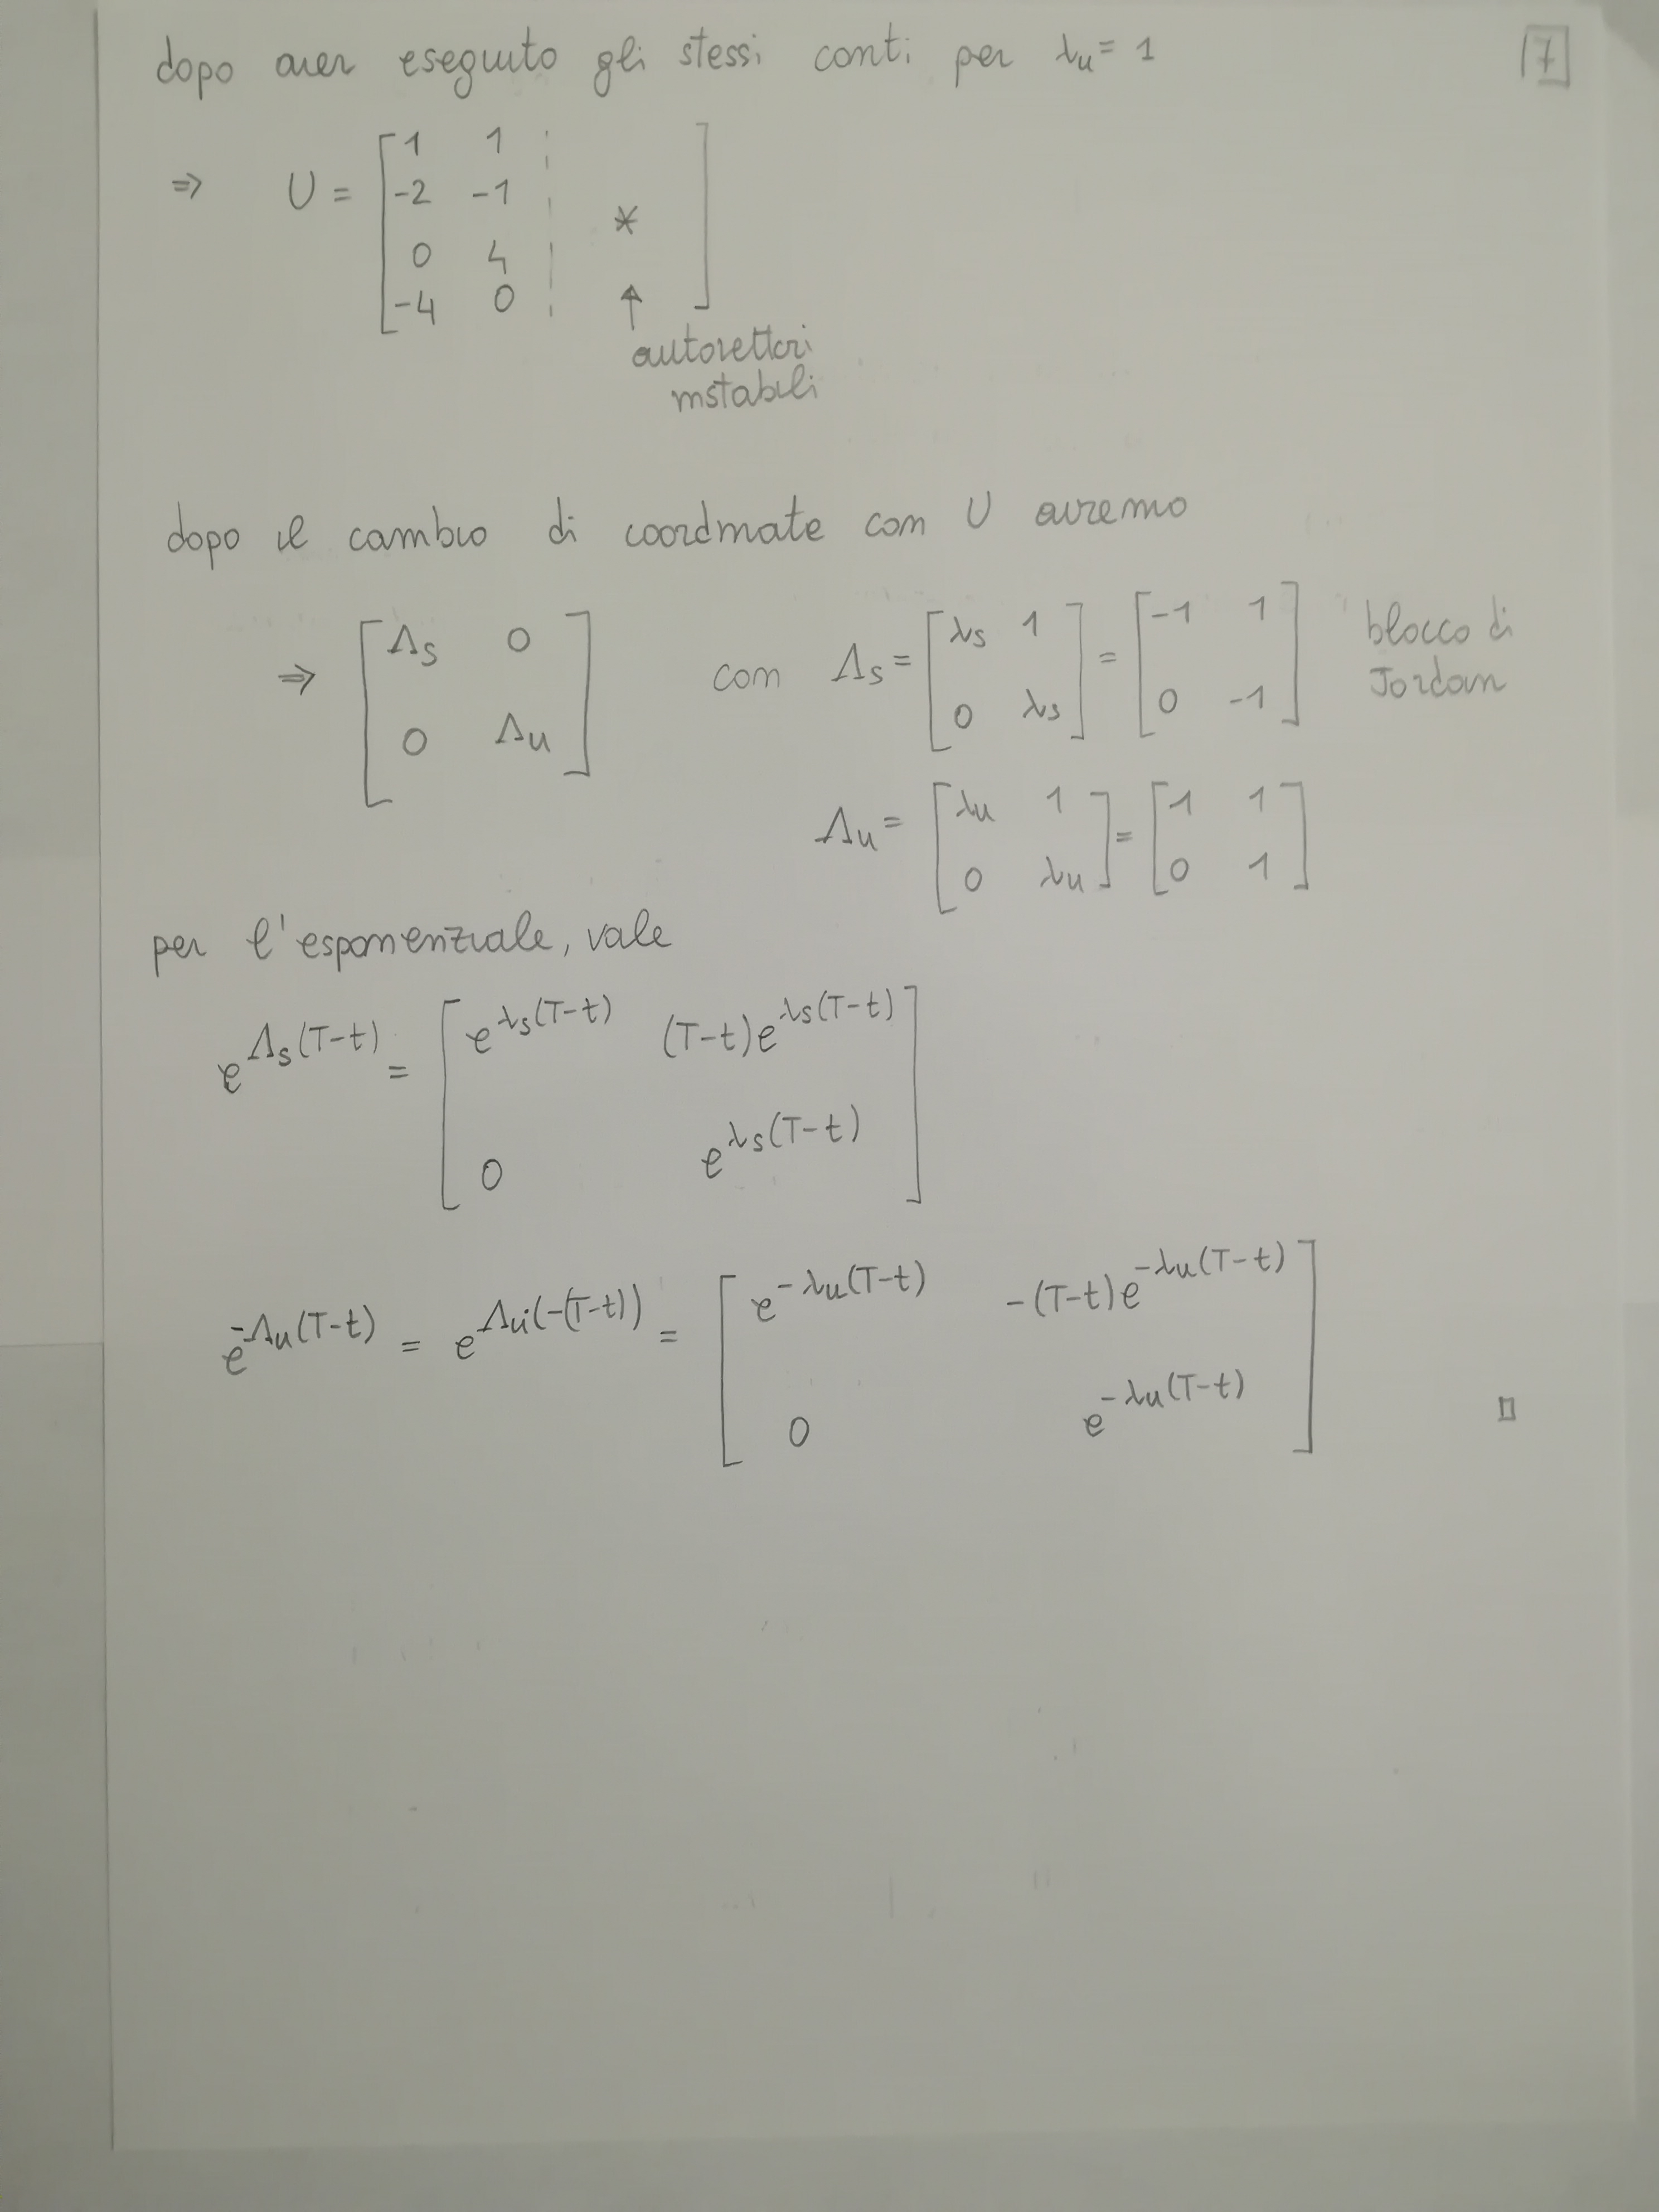 dopo aver eseguito gli stessi conti per λu = 1
[7]
⇒ U = [1 1 ¦
-2 -1 ¦
0 4 ¦ *
-4 0 ¦ ↑]
autovettori
instabili
dopo il cambio di coordinate con U avremo
⇒ [Λs 0
0 Λu]
con Λs = [λs 1
0 λs] = [-1 1
0 -1]
blocco di
Jordan
Λu = [λu 1
0 λu] = [1 1
0 1]
per l'esponenziale, vale
e^Λs(T-t) = [e^λs(T-t) (T-t)e^λs(T-t)
0 e^λs(T-t)]
e^-Λu(T-t) = e^Λu(-(T-t)) = [e^-λu(T-t) -(T-t)e^-λu(T-t)
0 e^-λu(T-t)]
□